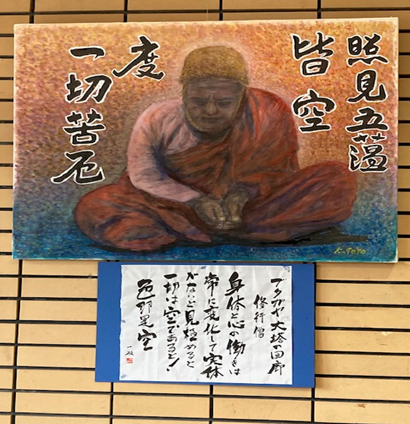 照見五蘊
皆空
度
一切苦厄
ブダガヤ 大塔の回廊
修行僧
身体と心の働きは
常に変化して実体
がないと見極めると
一切は空であると!
色即是空